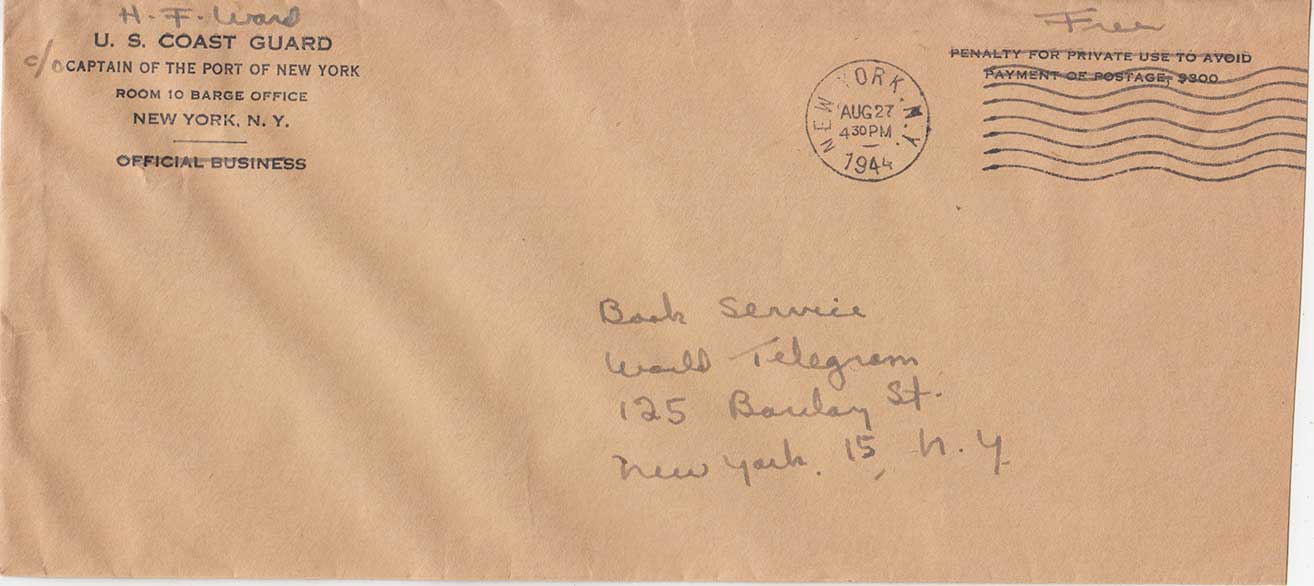 H. F. Ward
U. S. COAST GUARD
c/o CAPTAIN OF THE PORT OF NEW YORK
ROOM 10 BARGE OFFICE
NEW YORK, N. Y.
OFFICIAL BUSINESS
Free
PENALTY FOR PRIVATE USE TO AVOID
PAYMENT OF POSTAGE, $300
NEW YORK, N.Y.
AUG 27
4 30 PM
1944
Book Service
World Telegram
125 Barclay St.
New York. 15, N. Y.